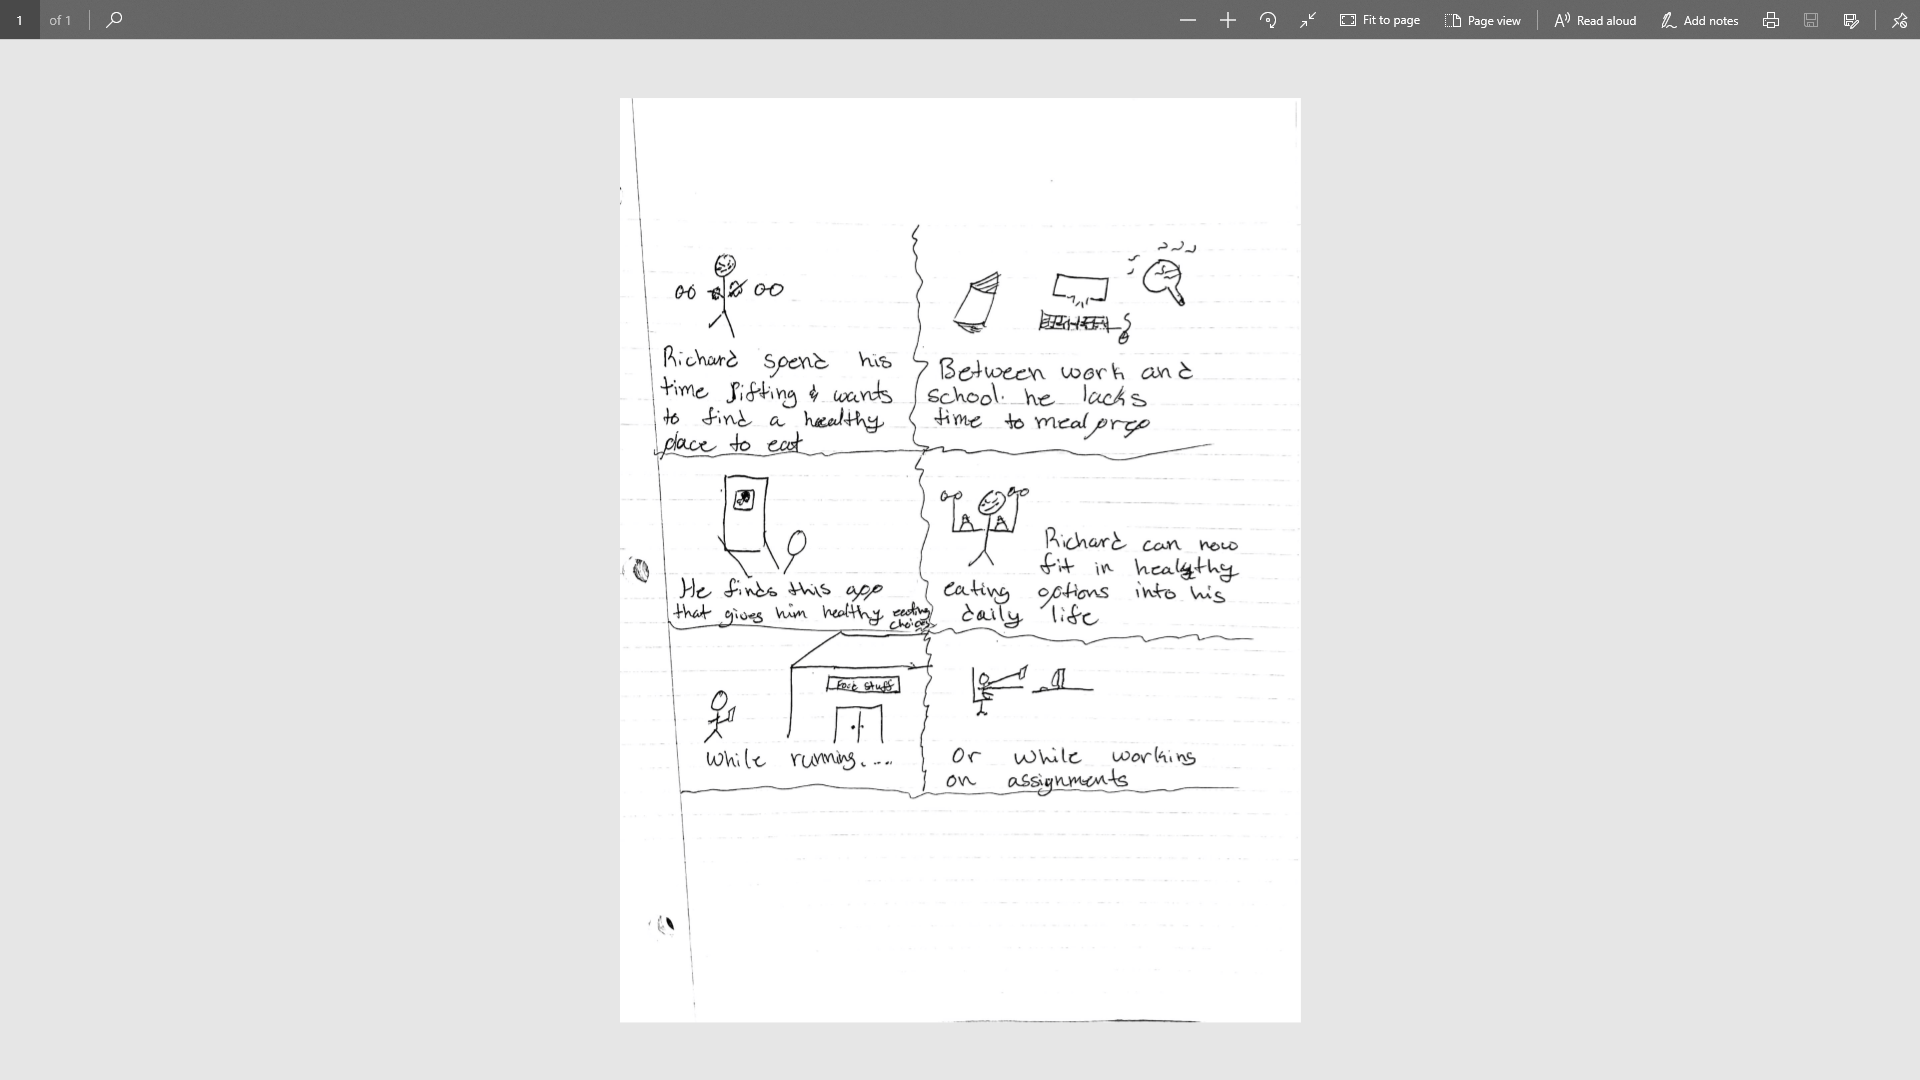 1 of 1
Fit to page
Page view
Read aloud
Add notes
Richard spend his
time lifting & wants
to find a healthy
place to eat
Between work and
school. he lacks
time to meal prep
He finds this app
that gives him healthy eating
choices
Richard can now
fit in healythy
eating options into his
daily life
Food Stuff
while running....
Or while working
on assignments